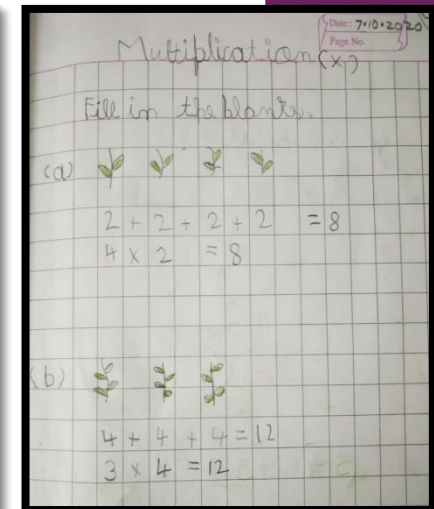 Date: 7.10.2020
Page No.
Multiplication (x)
Fill in the blanks.
(a)
2 + 2 + 2 + 2 = 8
4 x 2 = 8
(b)
4 + 4 + 4 = 12
3 x 4 = 12